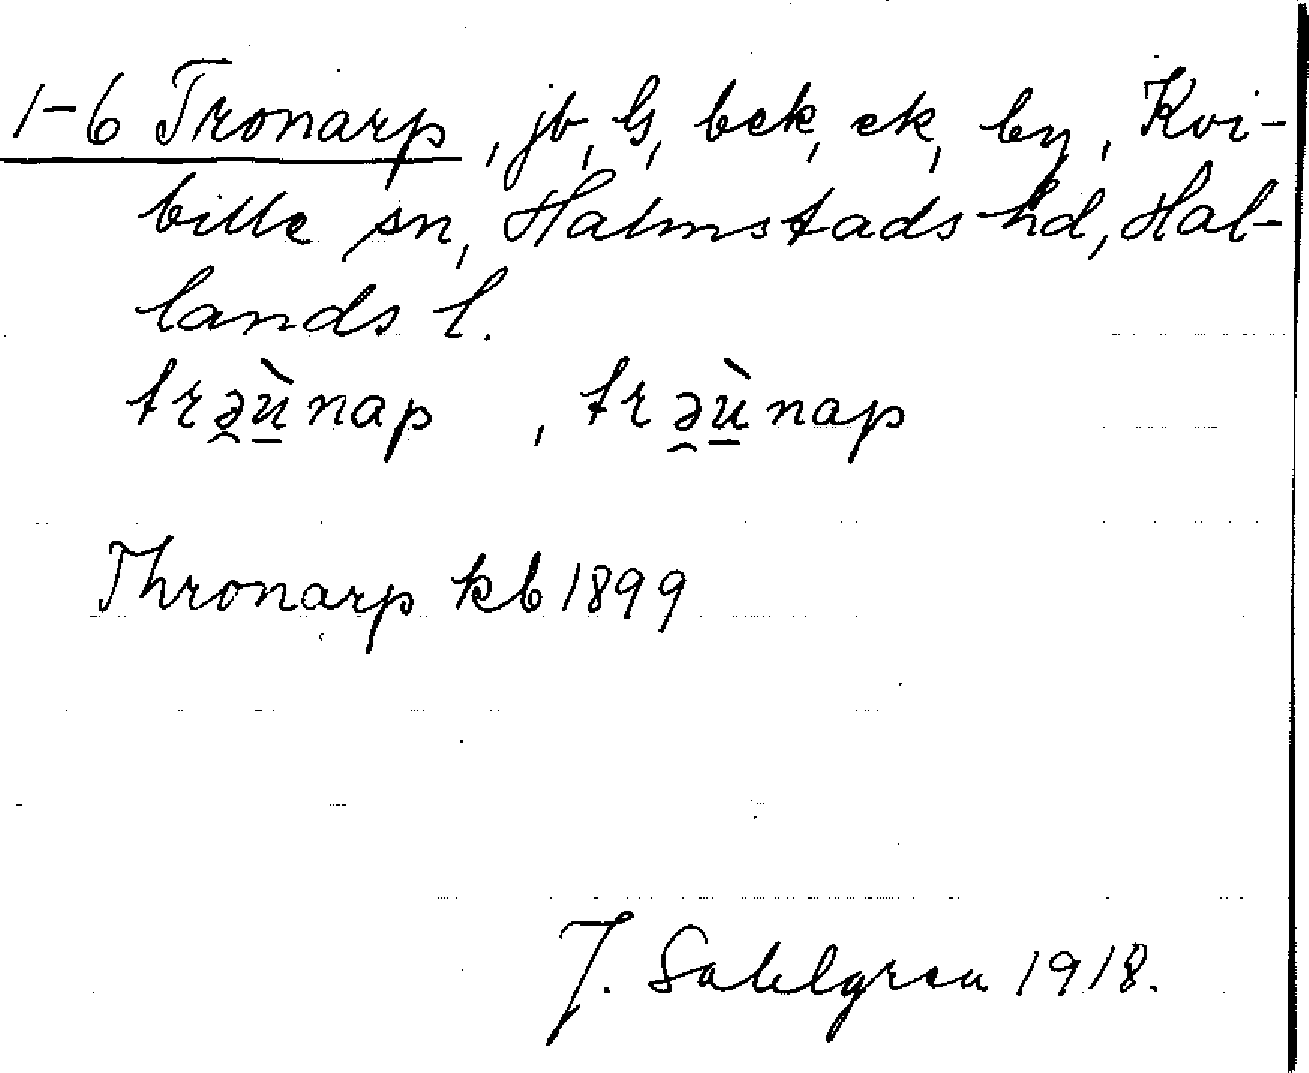 1-6 Tronarp, jb, G, bek, ek, by, Kvi-
bille sn, Halmstads hd, Hal-
lands l.
trə̯ù̱nap, trə̯ù̱nap
Thronarp kb 1899
J. Sahlgren 1918.